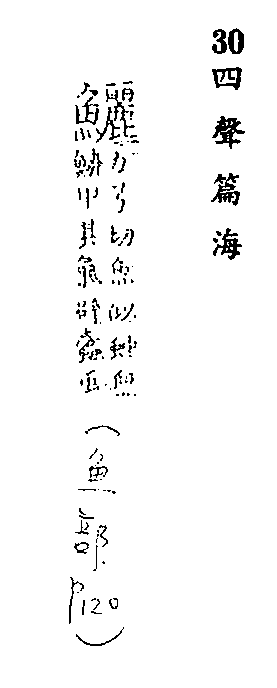 30四聲篇海
鱺力兮切魚似蛇無
鱗甲其氣辟蠹也
(魚部P120)